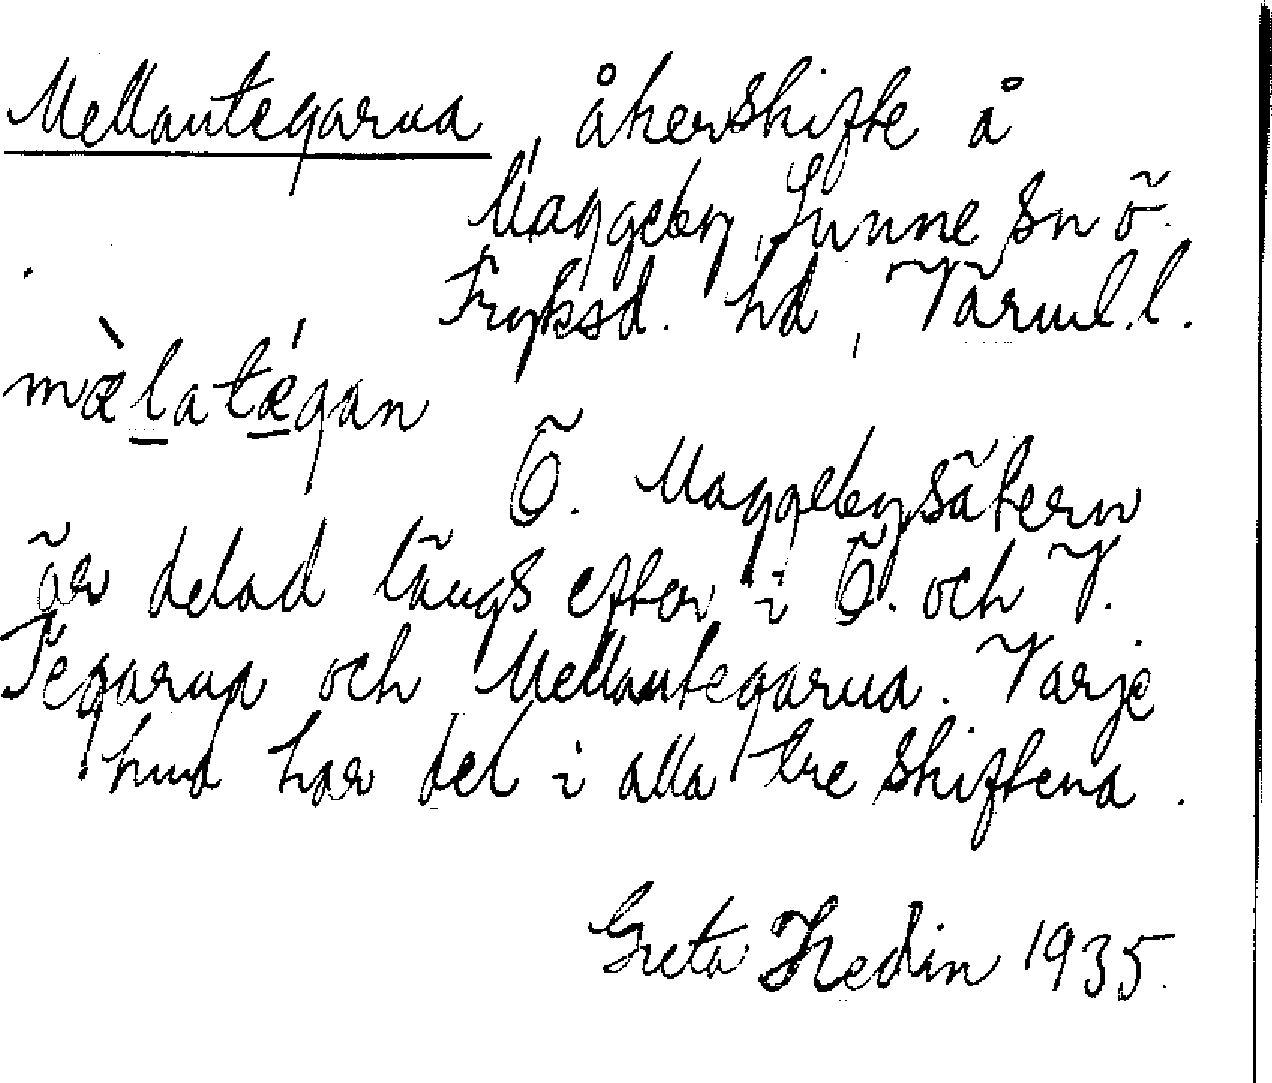 Mellantegarna, åkerskifte å
Maggeby, Sunne sn ö.
Fryksd. hd, Värml. l.
mæ̀latǽgan
Ö. Maggebysätern
är delad längs efter i Ö. och V.
Tegarna och Mellantegarna. Varje
hud har del i alla tre skiftena.
Greta Hedin 1935.